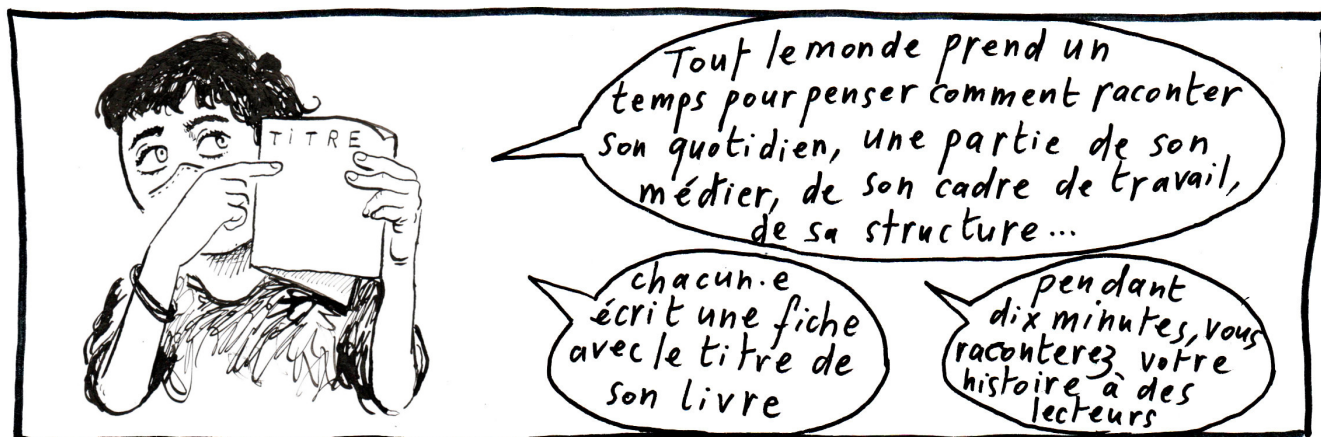 TITRE
Tout le monde prend un
temps pour penser comment raconter
son quotidien, une partie de son
métier, de son cadre de travail,
de sa structure...
chacun·e
écrit une fiche
avec le titre de
son livre
pendant
dix minutes, vous
raconterez votre
histoire à des
lecteurs